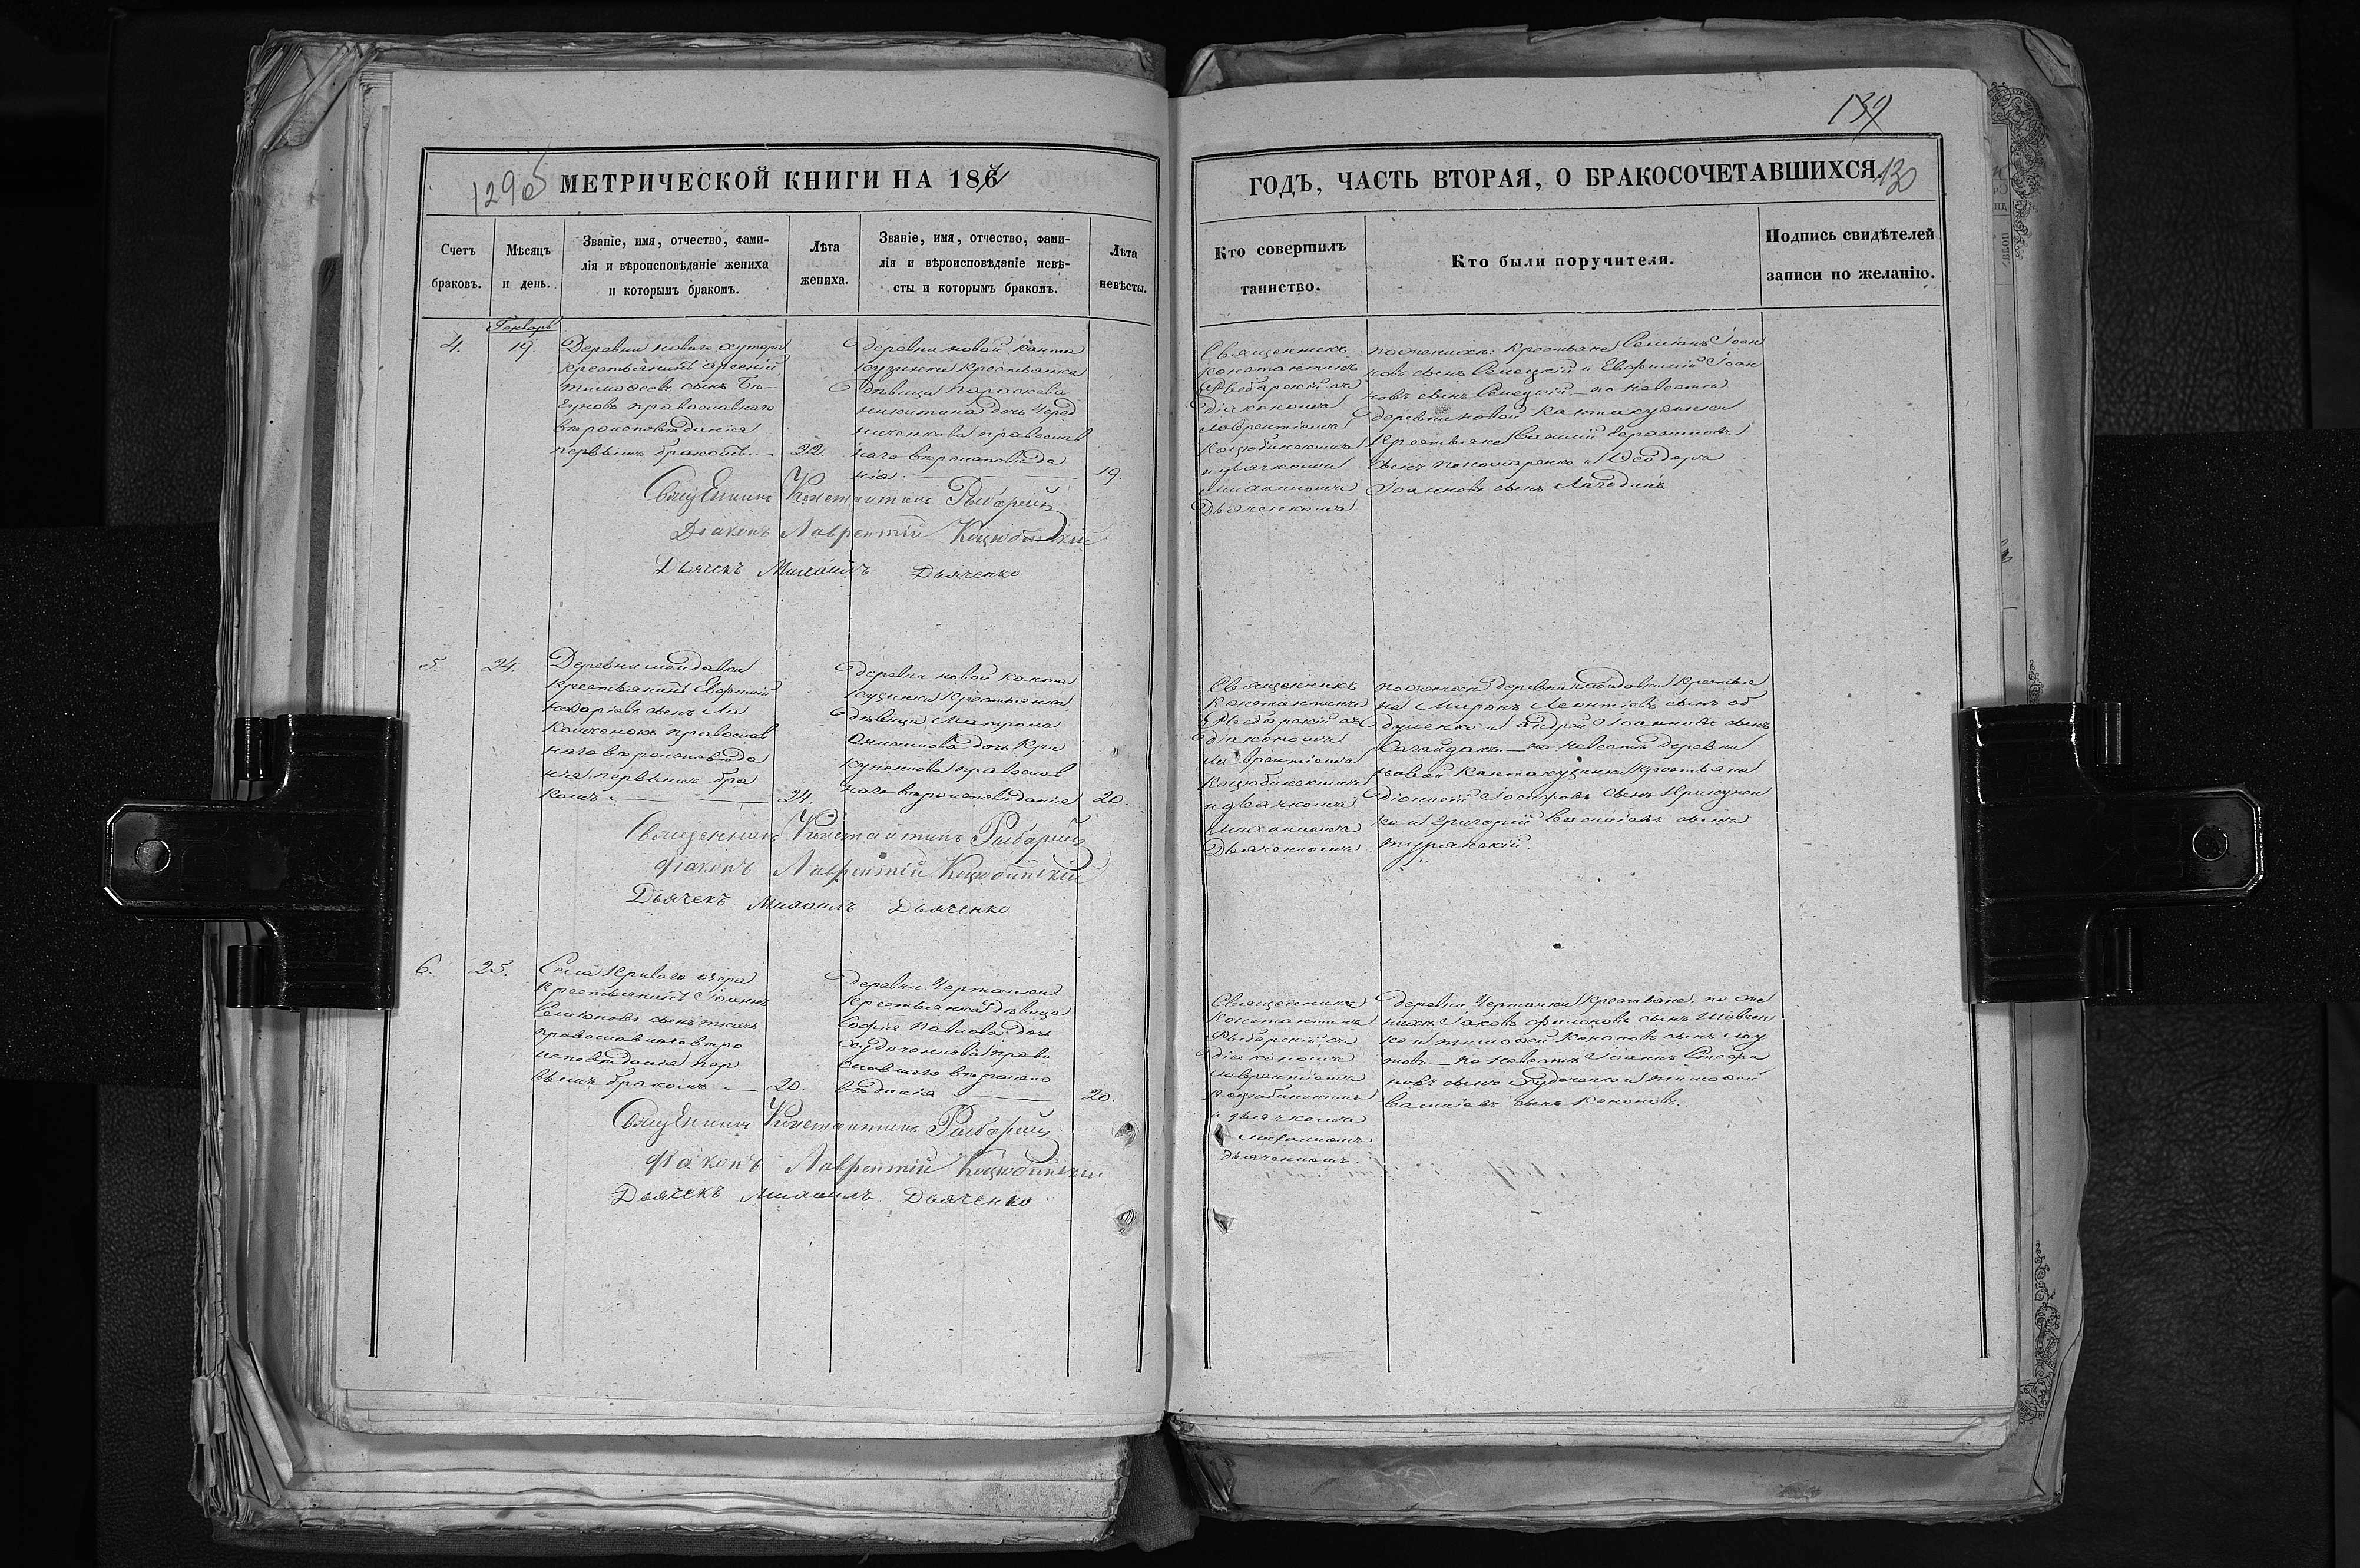 139
129об
МЕТРИЧЕСКОЙ КНИГИ НА 1861
ГОДЪ, ЧАСТЬ ВТОРАЯ, О БРАКОСОЧЕТАВШИХСЯ.
130
Счетъ
браковъ.
Мѣсяцъ
и день.
Званіе, имя, отчество, фами-
лія и вѣроисповѣданіе жениха
и которымъ бракомъ.
Лѣта
жениха.
Званіе, имя, отчество, фами-
лія и вѣроисповѣданіе невѣ-
сты и которымъ бракомъ.
Лѣта
невѣсты.
Кто совершилъ
таинство.
Кто были поручители.
Подпись свидѣтелей
записи по желанію.
Генварь
4.
19.
Деревни новаго хутора
крестьянинъ Арсеній
Тимофеевъ сынъ Бѣ-
гуновъ православнаго
вѣроисповѣданія
первымъ бракомъ. —
22.
Деревни новой Канта
кузинки крестьянка
дѣвица Параскева
Никитина дочь Черед
ниченкова православ
наго вѣроисповѣда
нія. —
19.
Священникъ
Константинъ
Рыбарскій съ
діакономъ
Лаврентіемъ
Коцюбинскимъ
и дьячкомъ
Михаиломъ
Дьяченкомъ
по женихѣ: крестьяне Семіонъ Іоан
новъ сынъ и Евфимій Іоан
новъ сынъ — по невестѣ
деревни новой Кантакузинки
крестьяне Василій Герасимовъ
сынъ Пономаренко и Ѳеодоръ
Іоанновъ сынъ Лагодинъ
Священникъ Константинъ Рыбарскій
Діаконъ Лаврентій Коцюбинскій
Дьячекъ Михаилъ Дьяченко
5.
24.
Деревни Молдавки
крестьянинъ Евфимій
Назаріевъ сынъ Ла
православ
наго вѣроисповѣда
нія первымъ бра
комъ. —
24.
деревни новой Канта
кузинки крестьянка
дѣвица Матрона
Онисимова дочь Кри
куненкова православ
наго вѣроисповѣданія
20.
Священникъ
Константинъ
Рыбарскій съ
діакономъ
Лаврентіемъ
Коцюбинскимъ
и дьячкомъ
Михаиломъ
Дьяченкомъ
по женихѣ деревни Молдавки крестья
не Миронъ Леонтіевъ сынъ
и Андрей Іоанновъ сынъ
Сагайдакъ — по невестѣ деревни
новой Кантакузинки крестьяне
Діонисій Іосифовъ сынъ Крикунен
ко и Григорій Василіевъ сынъ
Турянскій.
Священникъ Константинъ Рыбарскій
Діаконъ Лаврентій Коцюбинскій
Дьячекъ Михаилъ Дьяченко
6.
25.
Села Криваго озера
крестьянинъ Іоаннъ
Семіоновъ сынъ Ткачь
православнаго вѣро
исповѣданія пер
вымъ бракомъ. —
20.
деревни Чертанки
крестьянка дѣвица
Софія Павлова дочь
Худоченкова право
славнаго вѣроиспо
вѣданія —
20.
Священникъ
Константинъ
Рыбарскій съ
діакономъ
Лаврентіемъ
Коцюбинскимъ
и дьячкомъ
Михаиломъ
Дьяченкомъ
деревни Чертанки крестьяне, по же
нихѣ Іаковъ Филиповъ сынъ Шевчен
ко и Тимофей Кононовъ сынъ
— по невестѣ Іоаннъ
сынъ Худоченко и Тимофей
Василіевъ сынъ Кононовъ.
Священникъ Константинъ Рыбарскій
Діаконъ Лаврентій Коцюбинскій
Дьячекъ Михаилъ Дьяченко